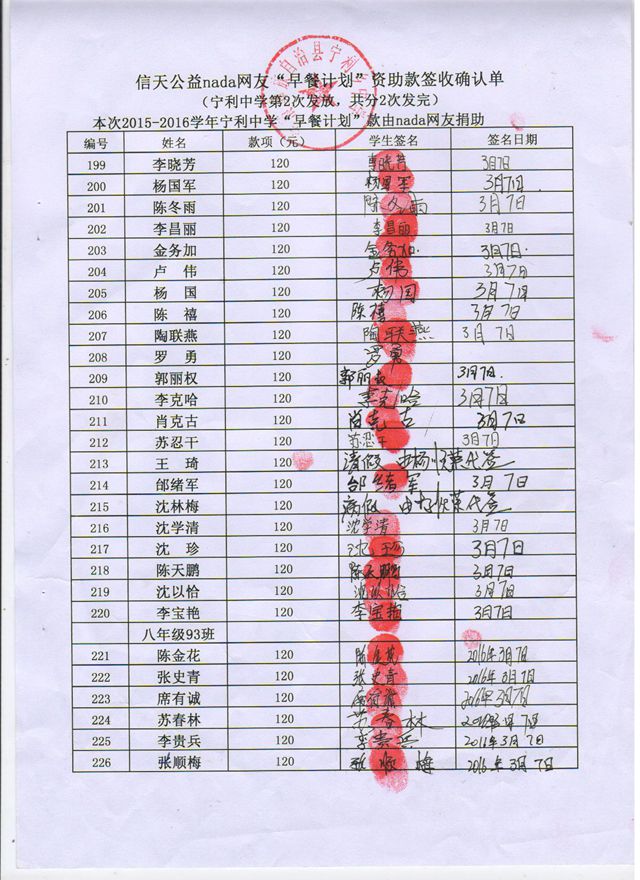 信天公益nada网友“早餐计划”资助款签收确认单
（宁利中学第2次发放，共分2次发完）
本次2015-2016学年宁利中学“早餐计划”款由nada网友捐助
编号 姓名 款项（元） 学生签名 签名日期
199 李晓芳 120 李晓芳 3月7日
200 杨国军 120 杨国军 3月7日.
201 陈冬雨 120 陈冬雨 3月7日
202 李昌丽 120 李昌丽 3月7日
203 金务加 120 金务加. 3月7日.
204 卢 伟 120 卢伟 3月7日
205 杨 国 120 杨国 3月7日
206 陈 禧 120 陈禧 3月7日
207 陶联燕 120 陶联燕 3月7日
208 罗 勇 120 罗勇
209 郭丽权 120 郭丽权 3月7日.
210 李克哈 120 李克哈 3月7日
211 肖克古 120 肖克古 3月7日
212 苏忍干 120 苏忍干 3月7日
213 王 琦 120 请假 代签
214 邰绪军 120 邰绪军 3月7日
215 沈林梅 120 病假 由 代签
216 沈学清 120 沈学清 3月7日
217 沈 珍 120 沈珍 3月7日
218 陈天鹏 120 陈天鹏 3月7日
219 沈以恰 120 沈以恰 3月7日
220 李宝艳 120 李宝艳 3月7日
八年级93班
221 陈金花 120 陈金花 2016年3月7日
222 张史青 120 张史青 2016年3月7日
223 席有诚 120 席有诚 2016年3月7日
224 苏春林 120 苏春林 2016年3月7日
225 李贵兵 120 李贵兵 2016年3月7日
226 张顺梅 120 张顺梅 2016年3月7日